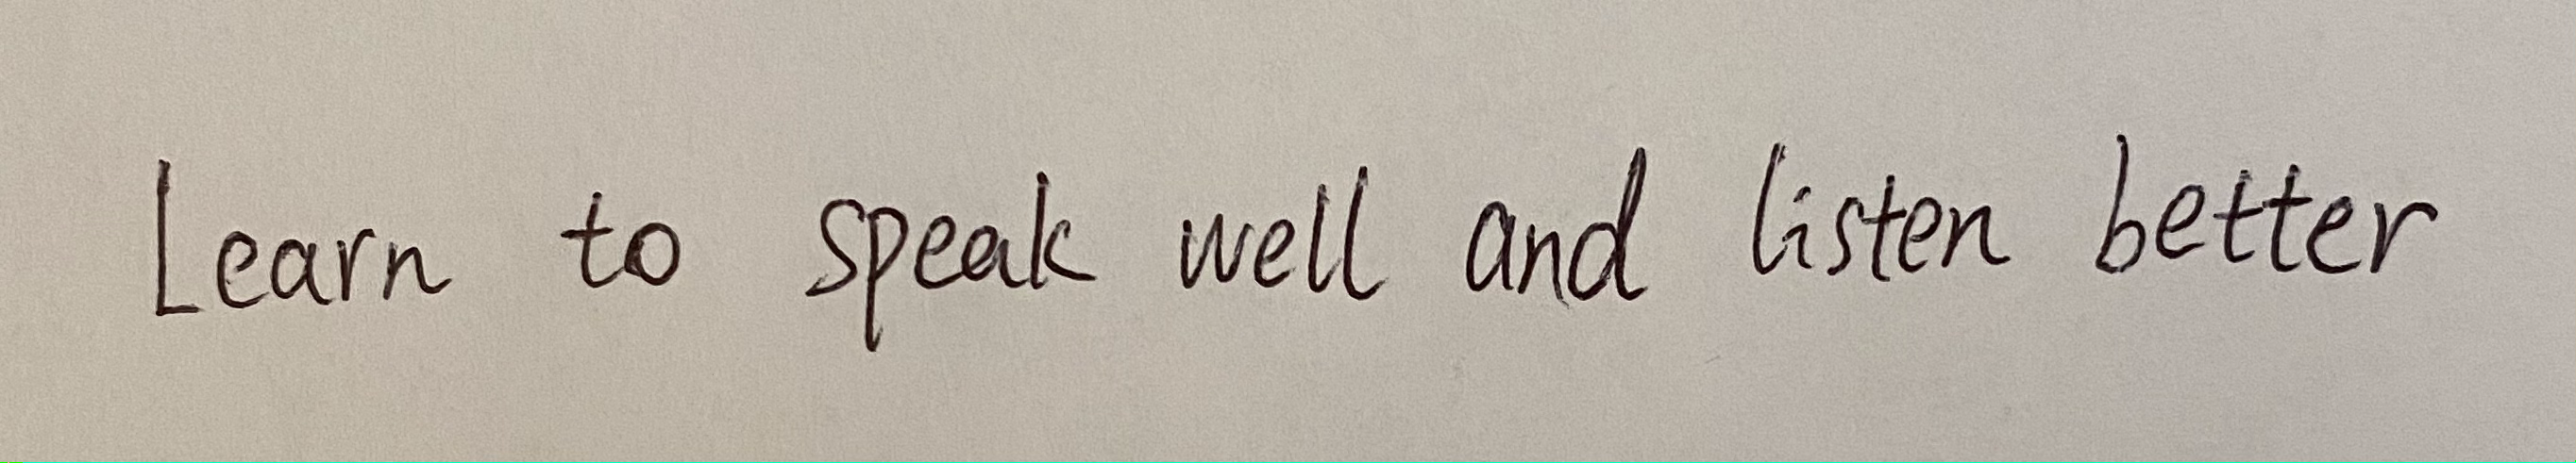 Learn to speak well and listen better